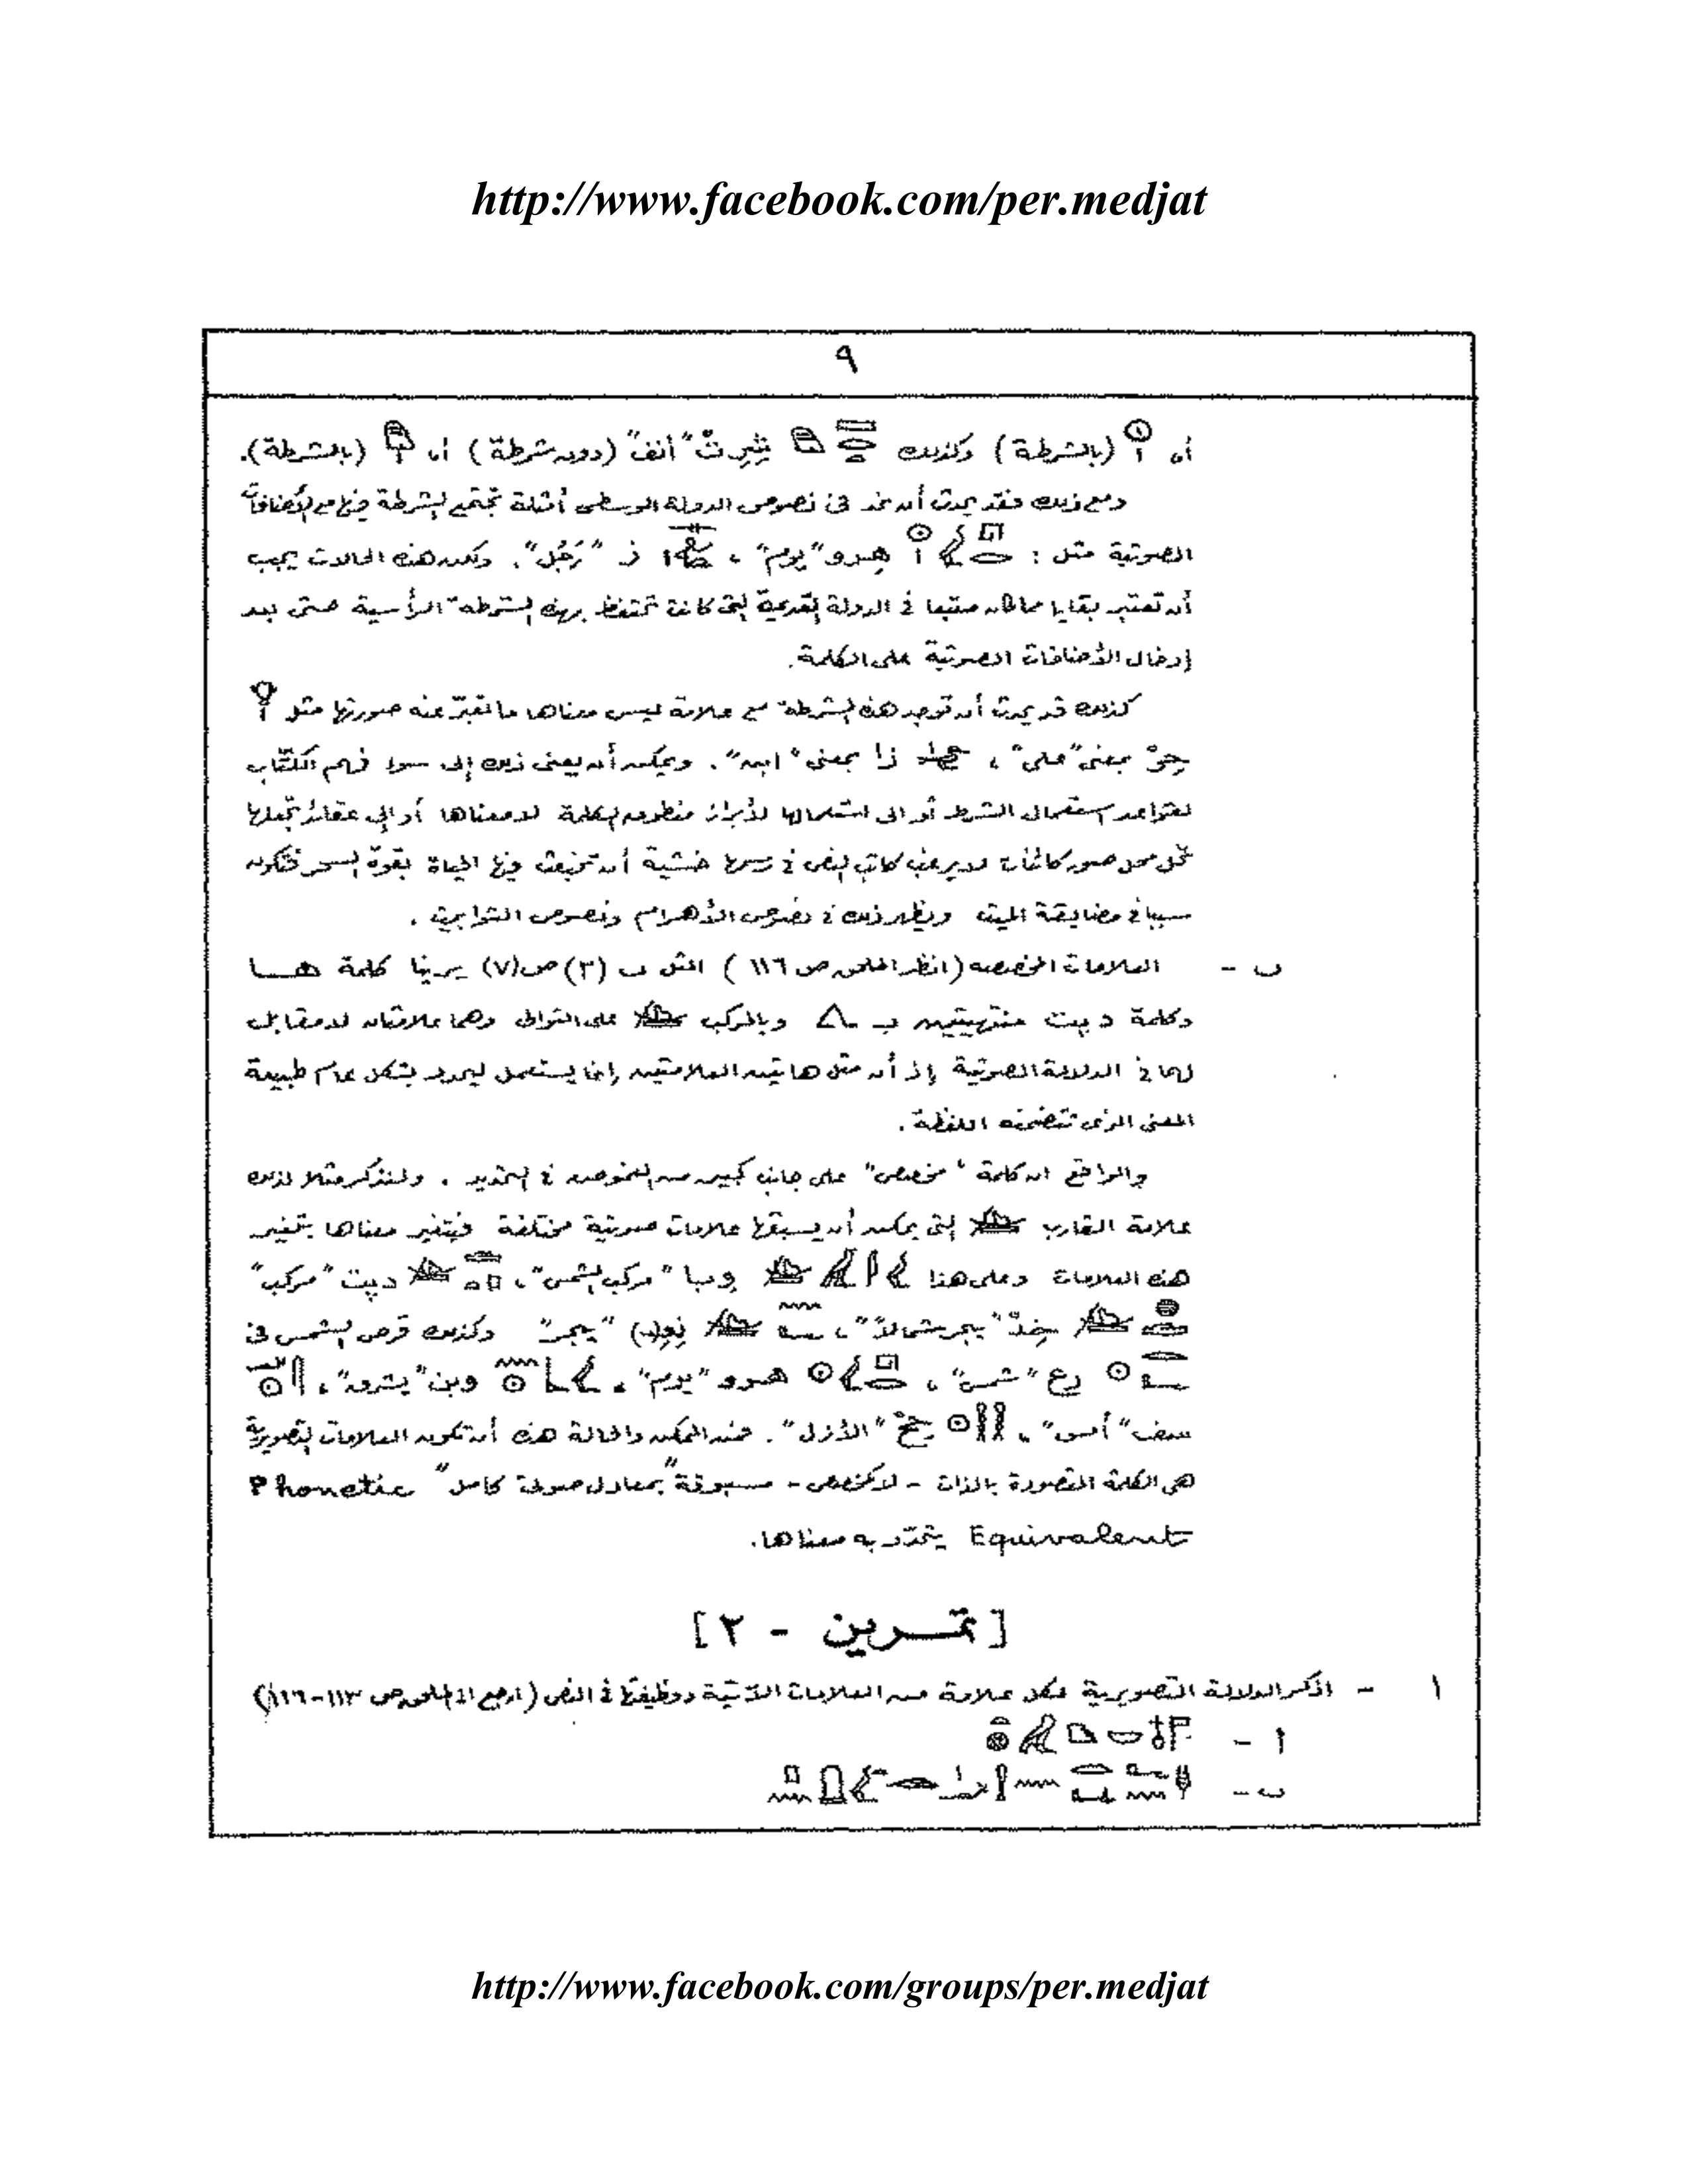 http://www.facebook.com/per.medjat
٩
أو (بالشرطة) وكذلك "أنف" (دون شرطة) أو (بالشرطة).
ومع ذلك فقد يحدث أن نجد فى نصوص الدولة الوسطى أمثلة تجتمع الشرطة فيها مع الإضافات
الصوتية مثل : هـرو "يوم" ، ز "رَجُل". ولكن هذه الحالات يجب
أن تعتبر بقايا مما كان متبعا فى الدولة القديمة التى كانت تحتفظ بهذه الشرطة الرأسية حتى بعد
إدخال الأضافات الصوتية على الكلمة.
كذلك قد يحدث أن توجد هذه الشرطة مع علامة ليس معناها ما تعبّر عنه صورتها مثل
حِرْ بمعنى "على" ، زا بمعنى "ابن". ويمكن أن يعنى ذلك إلى سوء فهم الكتّاب
لقواعد استعمال الشرط أو الى استعمالها لأبراز منطوق الكلمة لا معناها أو إلى عقائد تجعلها
تحل محل صور كائنات لا يرغب كاتب النص فى رسمها خشية أن تنبعث فيها الحياة بقوة السحر فتكون
سببا فى مضايقة الميت ويظهر ذلك فى نصوص الأهرام ونصوص التوابيت .
ب - العلامات المخصصه (انظر الملحق ص ١١٦ ) المثل ب (٣) ص (٧) يرينا كلمة هــا
وكلمة دپت منتهيتين بـ وبالمركب على التوالى وهما علامتان لا مقابل
لهما فى الدلالة الصوتية إذ أن مثل هاتين العلامتين إنما يستعمل ليحدد بشكل عام طبيعة
المعنى الذى تتضمنه اللفظة .
والواقع ان كلمة "مخصص" على جانب كبير من الغموض فى التحديد . ولنذكر مثلا لذلك
علامة القارب التى يمكن أن يسبقها علامات صوتية مختلفة فيتغير معناها بتغير
هذه العلامات وعلى هذا ويا "مركب الشمس" ، دپت "مركب"
خِدْ "يبحر شمالاً" ، نِعِ(ى) "يبحر" وكذلك قرص الشمس فى
رع "شمس" ، هـرو "يوم" ، وبن "يشرق" ،
سف "أمس" ، نحح "الأزل" . فمن الممكن والحالة هذه أن تكون العلامات التصويرية
هى الكلمة المقصودة بالذات - لا كمخصص - مسبوقة "بمعادل صوتى كامل" Phonetic
Equivalent يتحدّد به معناها.
[تمـــرين - ٢]
١ - اذكر الدلالة التصويرية لكل علامة من العلامات الآتية ووظيفتها فى النص (ارجع الى الملحق ص ١١٣-١١٦)
أ -
ب -
http://www.facebook.com/groups/per.medjat